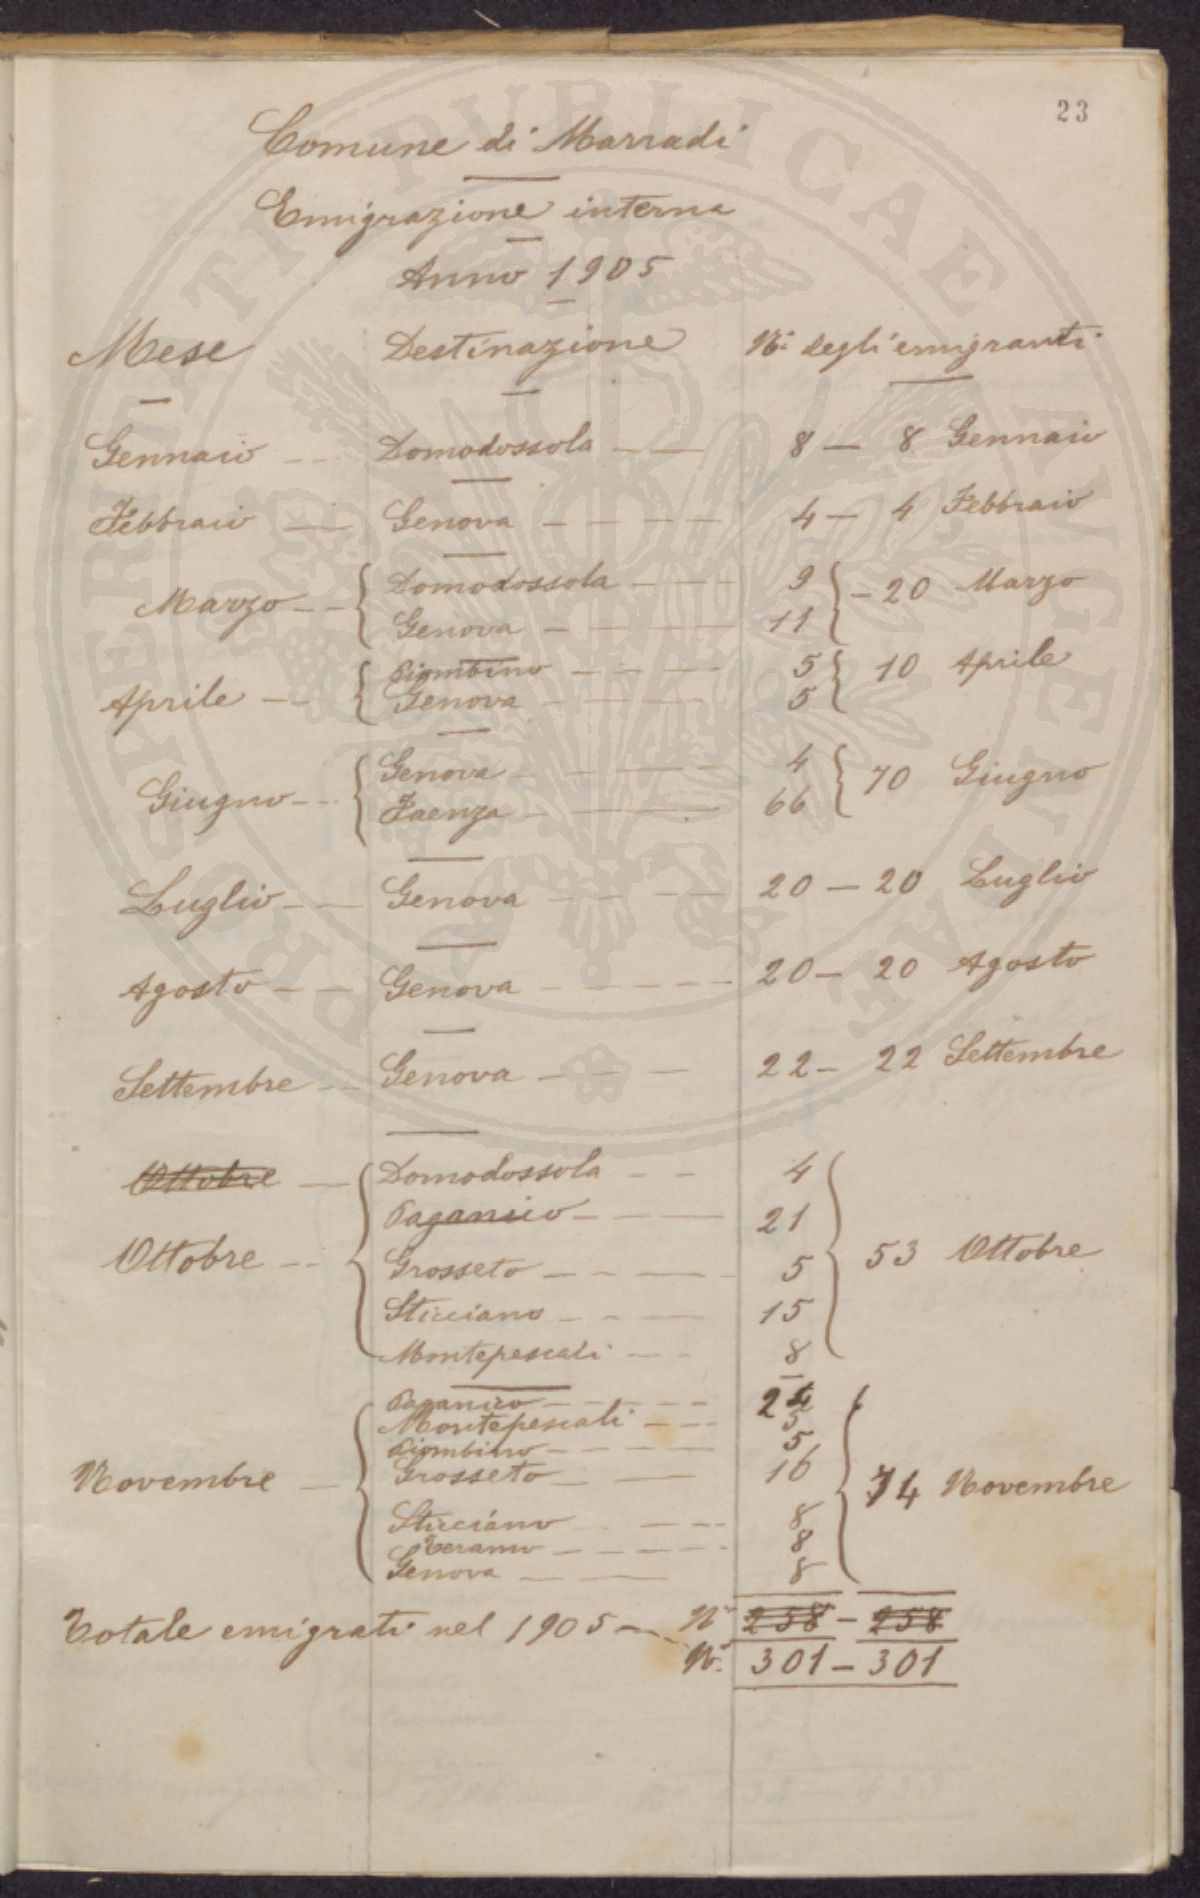 23
Comune di Marradi
Emigrazione interna
Anno 1905
Mese Destinazione Nº degli emigranti
Gennaio -- Domodossola -- 8 - 8 Gennaio
Febbraio -- Genova ---- 4 - 4 Febbraio
Marzo -- { Domodossola --- 9 } - 20 Marzo
Genova ---- 11
Aprile -- { Piombino ---- 5 } 10 Aprile
Genova ---- 5
Giugno -- { Genova ---- 4 } 70 Giugno
Faenza ---- 66
Luglio -- Genova ---- 20 - 20 Luglio
Agosto -- Genova ----- 20 - 20 Agosto
Settembre -- Genova --- 22 - 22 Settembre
Ottobre - { Domodossola -- 4
Paganico --- 21
Ottobre -- Grosseto ---- 5 } 53 Ottobre
Sticciano --- 15
Montepescali --- 8
Paganico ---- 24
Montepescali --- 5
Piombino ---- 5
Novembre - { Grosseto -- 16 } 74 Novembre
Sticciano --- 8
Teramo ---- 8
Genova -- 8
Totale emigrati nel 1905 -- Nº 258 - 258
Nº 301 - 301
PROSPERITATI PVBLICAE AVGENDAE